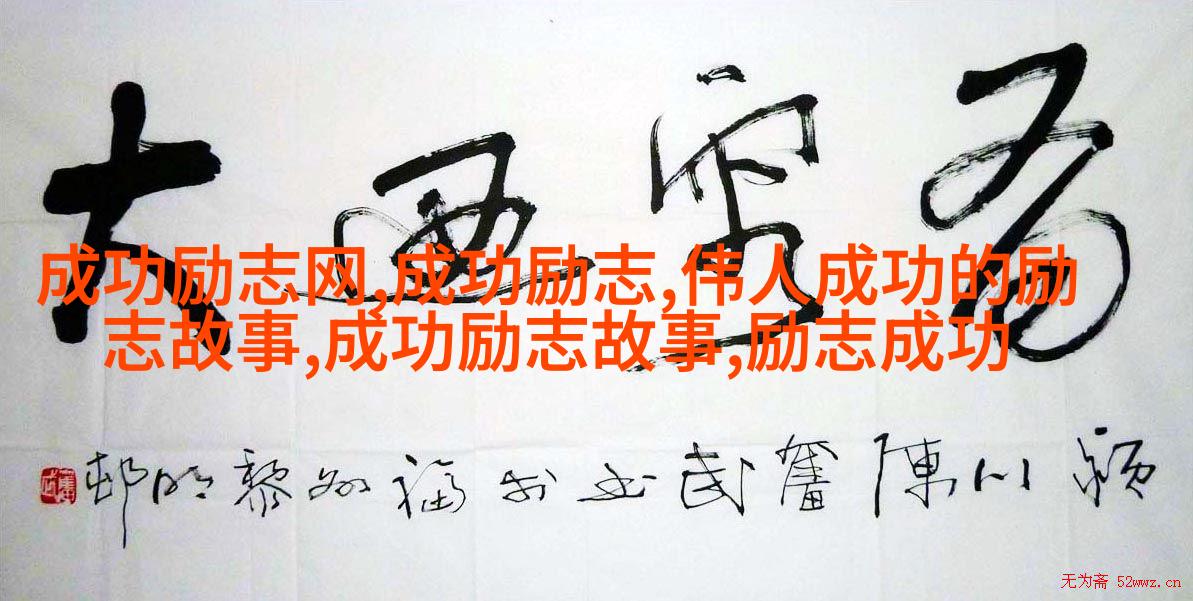 有容迺大
成功励志网,成功励志,伟人成功的励
志故事,成功励志故事,励志成功
潁川陳奮武书於福州黎明邨
无为斋 52wwz.cn